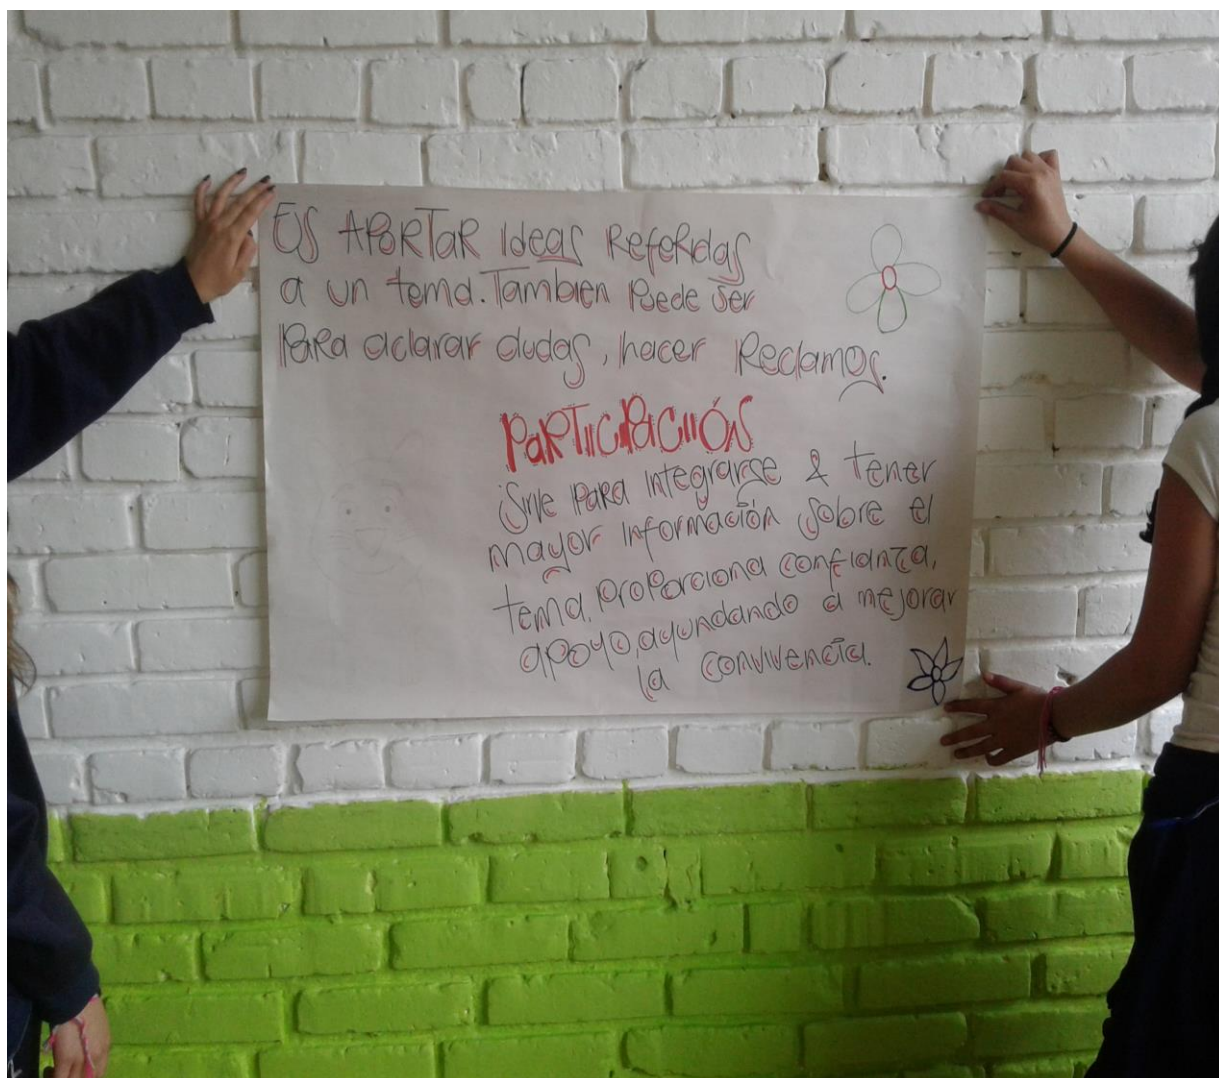 Es APORTAR ideas Referidas
a un tema. Tambien Puede ser
PARa aclarar dudas, hacer Reclamos.
PaRTiciPaCiÓN
Sirve PaRa integrarse & tener
mayor información sobre el
tema, proporciona confianza,
apoyo, ayundando a mejorar
la convivencia.